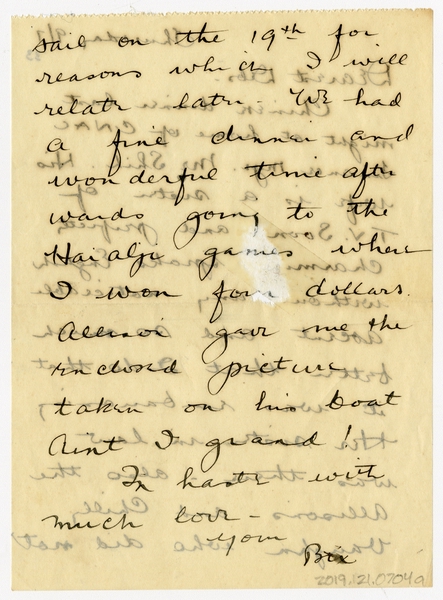 sail on the 19th for
reasons which I will
relate later - We had
a fine dinner and
wonderful time after
wards going to the
Hai alji games where
I won four dollars.
Allison gave me the
enclosed picture
taken on his boat
Aint I grand!
In haste with
much love -
your
Bix
2019.121.0704a